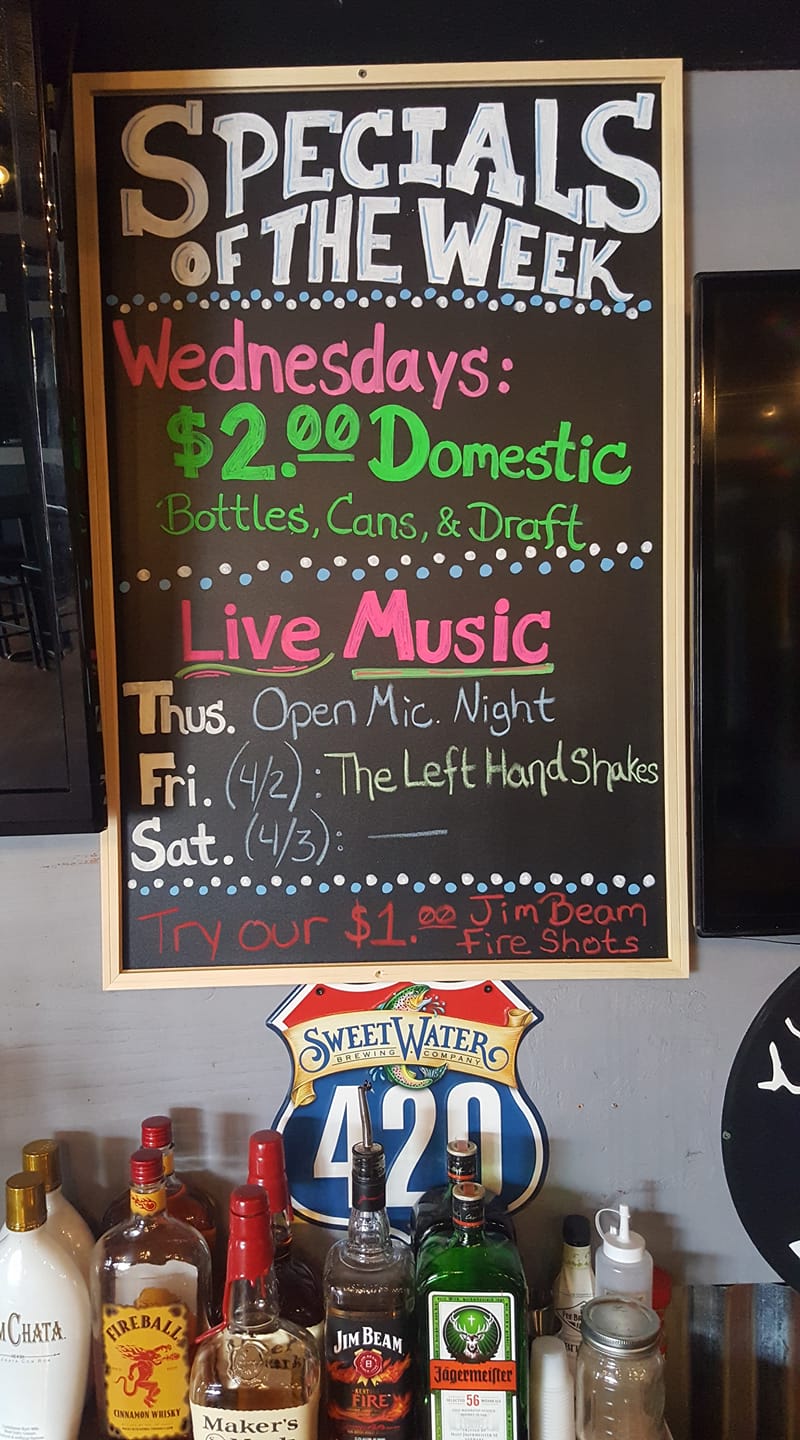 SPECIALS
OF THE WEEK
Wednesdays:
$2.00 Domestic
Bottles, Cans, & Draft
Live Music
Thus. Open Mic. Night
Fri. (4/2): The Left Hand Shakes
Sat. (4/3): —
Try our $1.00 Jim Beam
Fire Shots
SWEETWATER
BREWING COMPANY
420
MCHATA
FIREBALL
CINNAMON WHISKY
Maker's
Mark
JIM BEAM
KENTUCKY
FIRE
Jägermeister
SELECTED 56 BOTANICALS